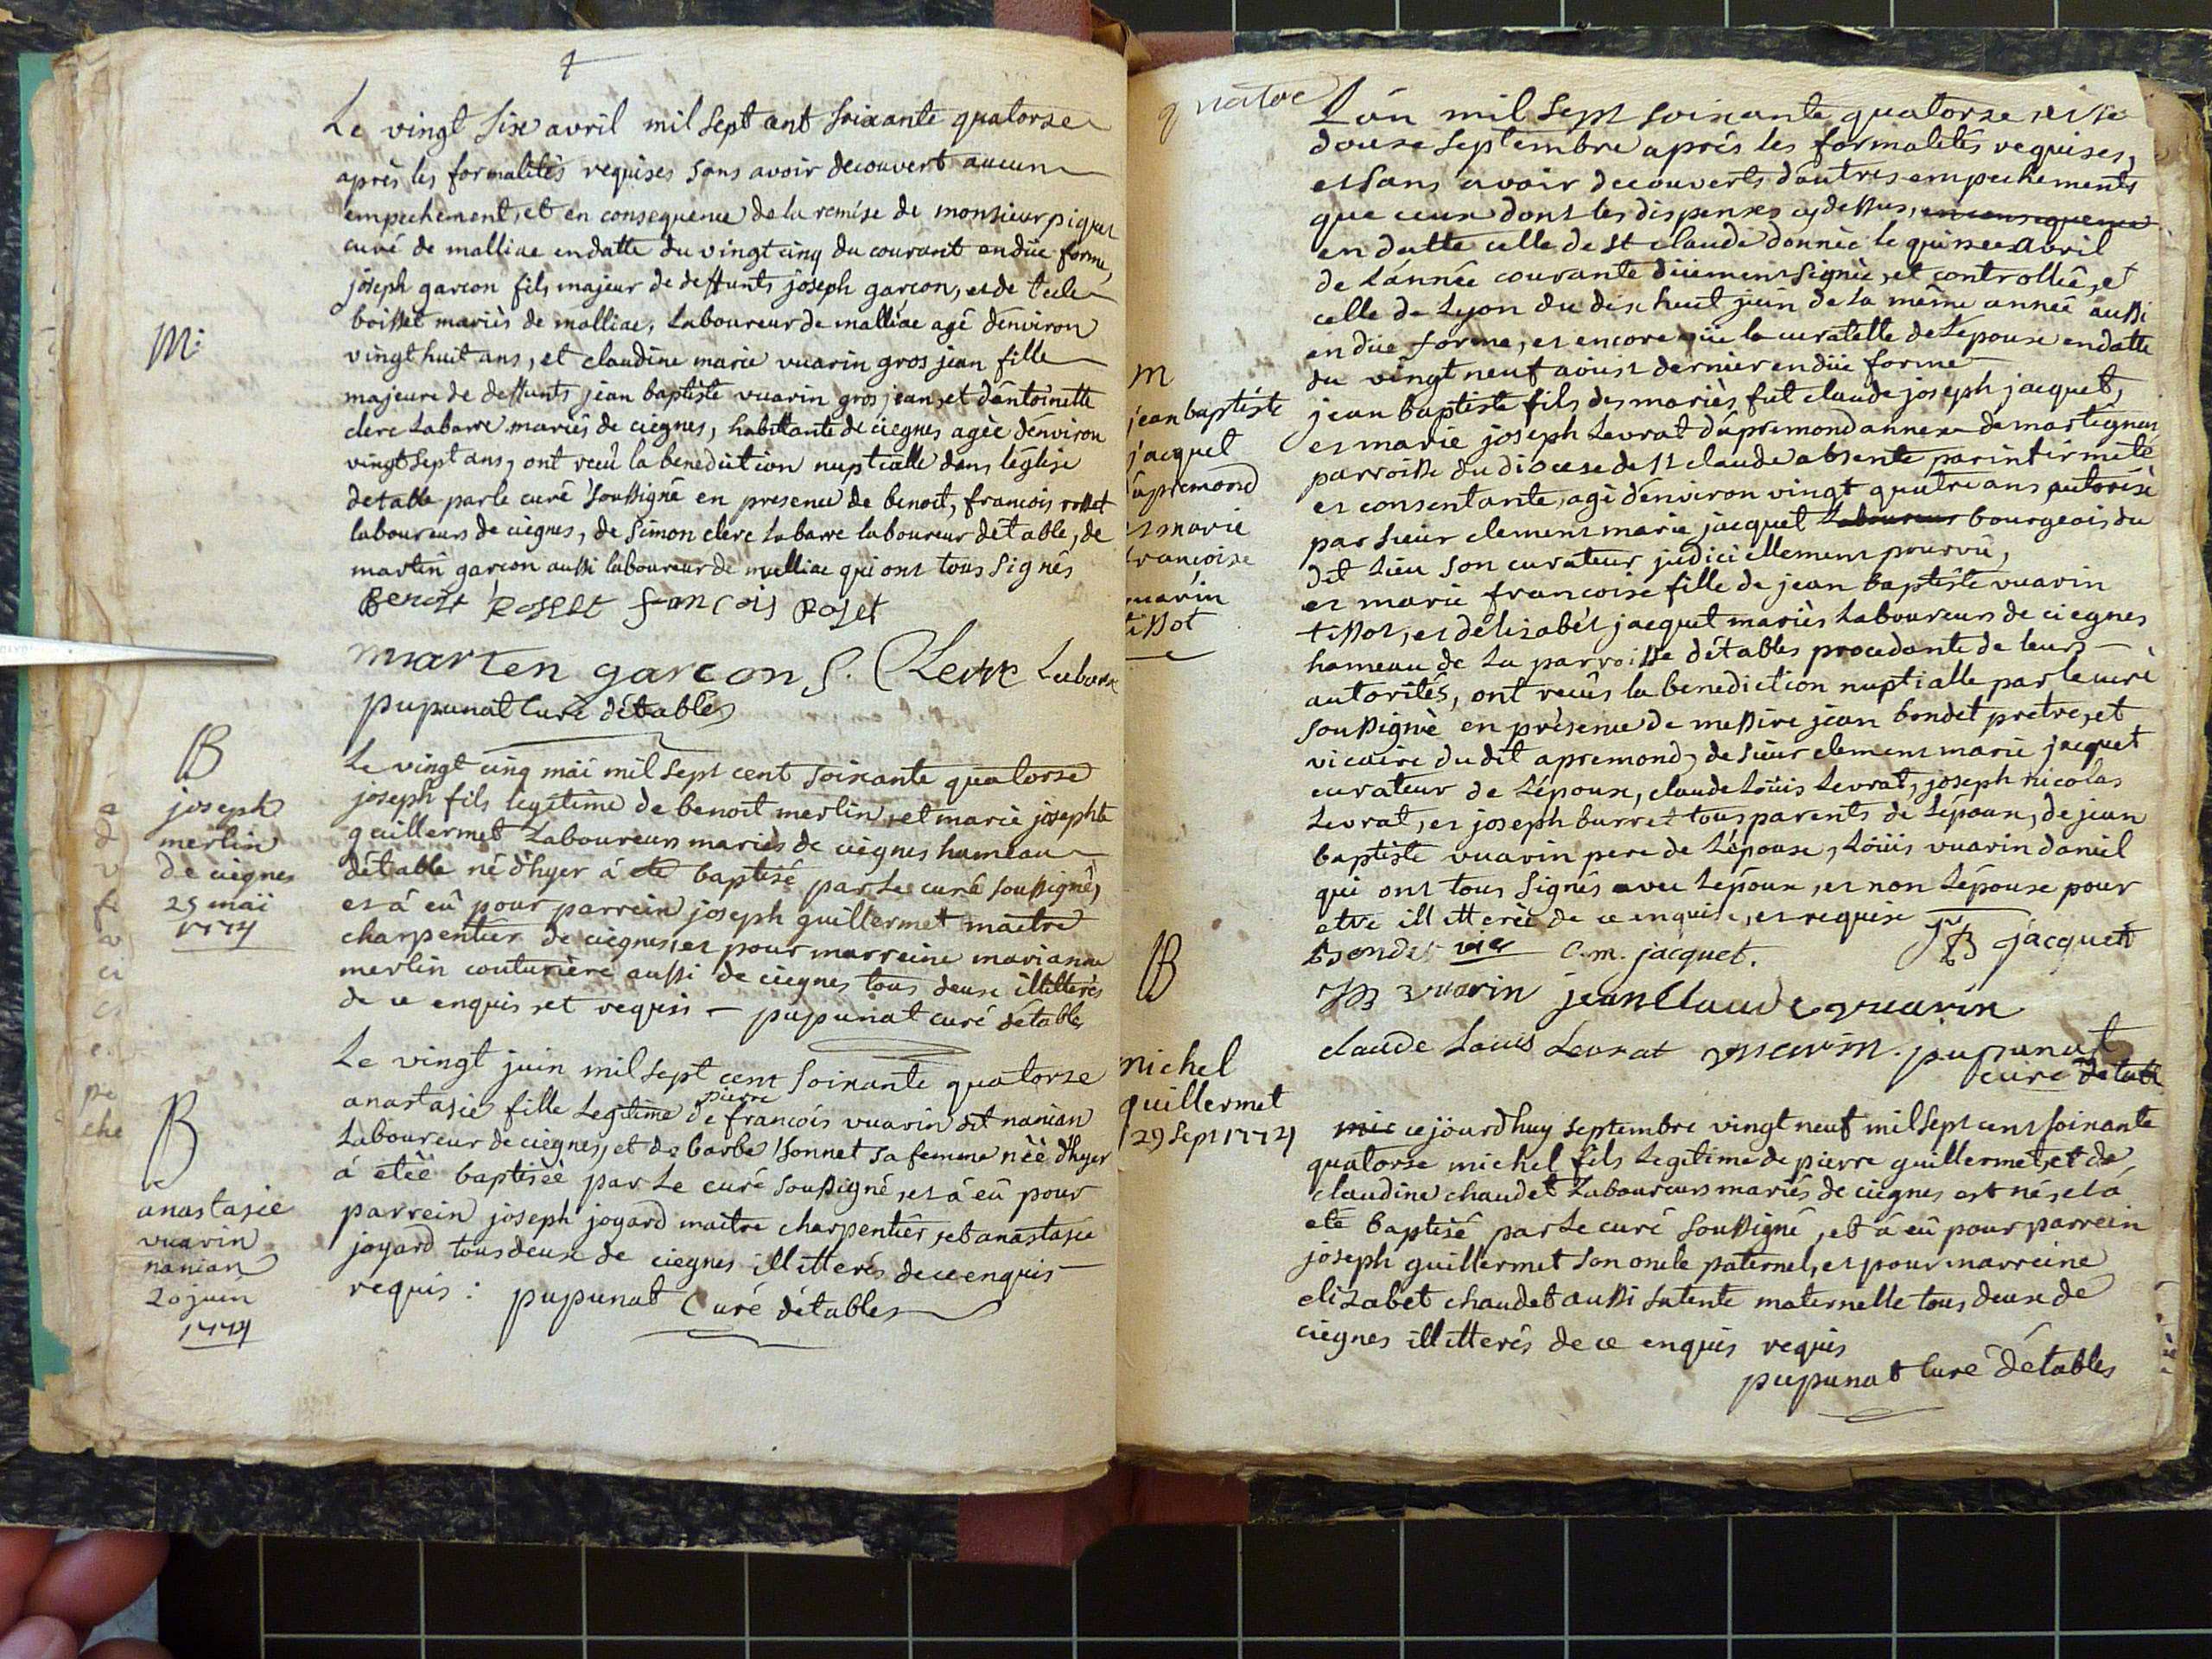 Le vingt six avril mil sept cent soixante quatorse
après les formalités requises sans avoir decouvert aucun
empechement, et en consequence de la remise de monsieur piquet
curé de malliac en datte du vingt cinq du courant en düe forme,
joseph garcon fils majeur de deffunts joseph garcon, et de
boisset mariès de malliac, laboureur de malliac agé d'environ
M:
vingt huit ans, et claudine marie vuarin gros jean fille
majeure de deffunts jean baptiste vuarin gros jean, et d'antoinette
clerc Labarre mariés de ciegnes, habittante de ciegnes agèe d'environ
vingt sept ans, ont recû la benediction nuptialle dans léglise
detable par le curé soussigné en presence de benoit, francois rosset
laboureurs de ciegnes, de simon clerc labarre laboureur détable, de
martin garcon aussi laboureur de malliac qui ont tous signés
Benoit Rosset francois Roset
marten garcon S. Clerc Labare
pupunat Curé détables
B
joseph
merlin
de ciegnes
25 mai
1774
Le vingt cinq mai mil sept cent soixante quatorse
joseph fils legitime de benoit merlin, et marie josephte
guillermet Laboureurs mariés de ciegnes hameau
détable né d'hyer á eté baptisé par Le curé soussigné,
et á eû pour parrein joseph guillermet maitre
charpentier de ciegnes, et pour marreine marianne
merlin couturière aussi de ciegnes tous deux illitterés
de ce enquis et requis - pupunat curé détables
B
anastasie
vuarin
nanian
20 juin
1774
Le vingt juin mil sept cent soixante quatorse
anastasie fille Legitime de pierre francois vuarin dit nanian
Laboureur de ciegnes, et de barbe sonnet sa femme néè d'hyer
á etéè baptiséè par Le curé soussigné, et á eû pour
parrein joseph joyard maitre charpentier, et anastasie
joyard tous deux de ciegnes illitterés de ce enquis
requis : pupunat Curé détables
quatre
L'an mil sept soixante quatorse et le
douse septembre aprés les formalités requises,
et sans avoir decouverts d'autres empechements
que ceux dont les dispenses cy dessus, en consequence
en datte celle de st claude donnée le quinse avril
de l'année courante düement signée, et controllée, et
celle de Lyon du dix huit juin de la même année aussi
en düe forme, et encore vüe la curatelle de L'epouse en datte
du vingt neuf aoust dernier en düe forme
m
jean baptiste
jacquet
apremond
et marie
francoise
vuarin
tissot
jean baptiste fils des mariés fut claude joseph jacquet,
et marie joseph Levrat d'apremond annexe de martignat
parroisse du diocese de st claude absente par infirmité
et consentante, agé d'environ vingt quatre ans autorisé
par sieur clement marie jacquet Laboureur bourgeois du
dit Lieu son curateur judiciellement pourvû,
et marie francoise fille de jean baptiste vuarin
tissot, et d'elizabét jacquet mariés Laboureurs de ciegnes
hameau de La parroisse détables procedante de leurs
autorités, ont recûs la benediction nuptialle par le curé
soussigné en présence de messire jean bondet pretre, et
vicaire du dit apremond, de sieur clement marie jacquet
curateur de L'époux, claude Loüis Levrat, joseph nicolas
Levrat, et joseph burret tous parents de L'époux, de jean
baptiste vuarin pere de L'épouse, Loüis vuarin daniel
qui ont tous signés avec L'époux, et non L'épouse pour
etre illitterée de ce enquise, et requise
bondet vic c.m. jacquet. JB jacquet
JB vuarin jean Claude vuarin
claude Louis Levrat vuarin. pupunat
curé détable
B
michel
guillermet
29 sept 1774
mic cejourdhuy septembre vingt neuf mil sept cent soixante
quatorse michel fils Legitime de pierre guillermet, et de
claudine chaudet Laboureurs mariés de ciegnes est né, et á
eté baptisé par Le curé soussigné, et á eû pour parrein
joseph guillermet son oncle paternel, et pour marreine
elizabet chaudet aussi sa tente maternelle tous deux de
ciegnes illitterés de ce enquis requis
pupunat Curé détables